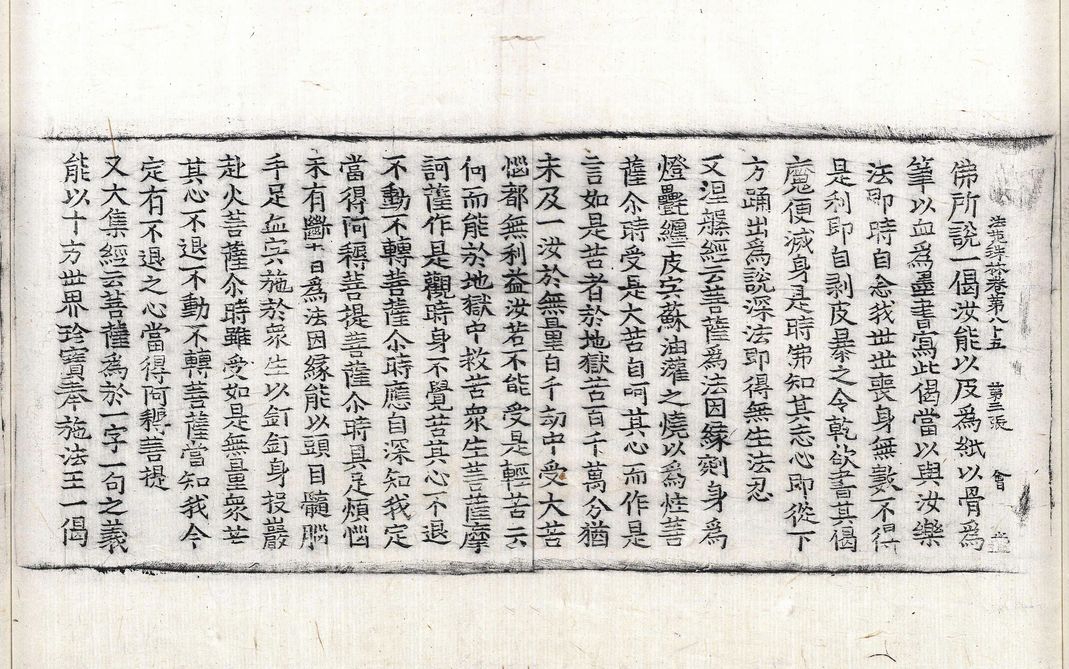 法苑珠林卷第八十五 第三張 會
佛所說一偈汝能以皮爲紙以骨爲
筆以血爲墨書寫此偈當以與汝樂
法即時自念我世世喪身無數不得
是利即自剥皮暴之令乾欲書其偈
魔便滅身是時佛知其志心即從下
方踊出爲說深法即得無生法忍
又涅槃經云菩薩爲法因緣剜身爲
燈㲲纏皮宍蘇油灌之燒以爲炷菩
薩尒時受是大苦自呵其心而作是
言如是苦者於地獄苦百千萬分猶
未及一汝於無量百千劫中受大苦
惱都無利益汝若不能受是輕苦云
何而能於地獄中救苦衆生菩薩摩
訶薩作是觀時身不覺苦其心不退
不動不轉菩薩尒時應自深知我定
當得阿耨菩提菩薩尒時具足煩惱
未有斷十日爲法因緣能以頭目髓腦
手足血宍施於衆生以釘釘身投巖
赴火菩薩尒時雖受如是無量衆苦
其心不退不動不轉菩薩當知我今
定有不退之心當得阿耨菩提
又大集經云菩薩爲於一字一句之義
能以十方世界珍寶奉施法王一偈